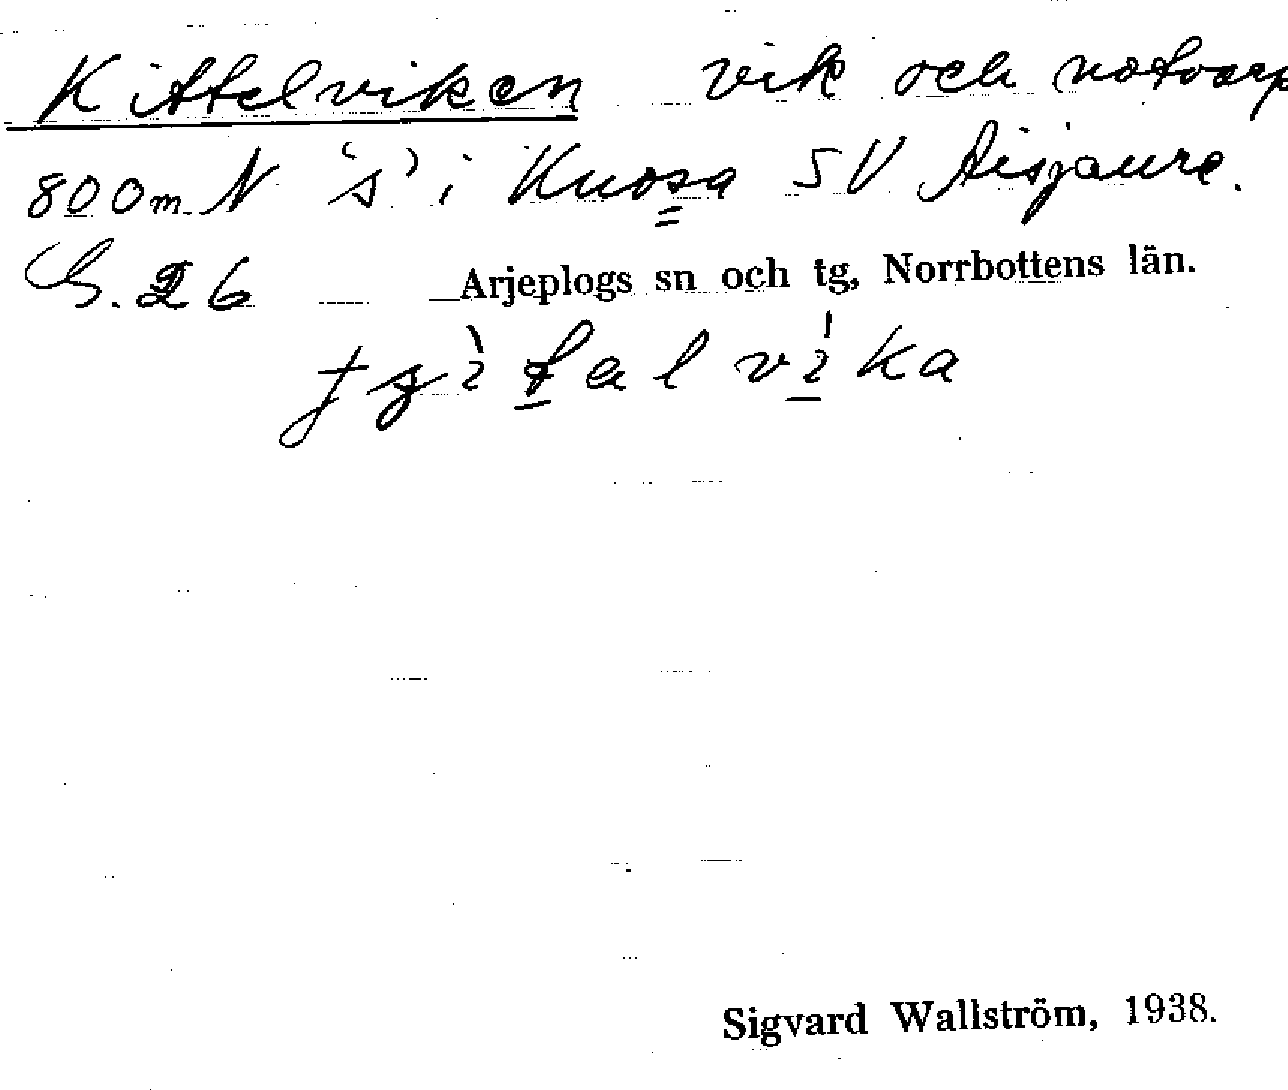 Kittelviken vik och notvarp
800 m N 's' i Kuosa SV Aisjaure.
G. 26 Arjeplogs sn och tg, Norrbottens län.
Sigvard Wallström, 1938.